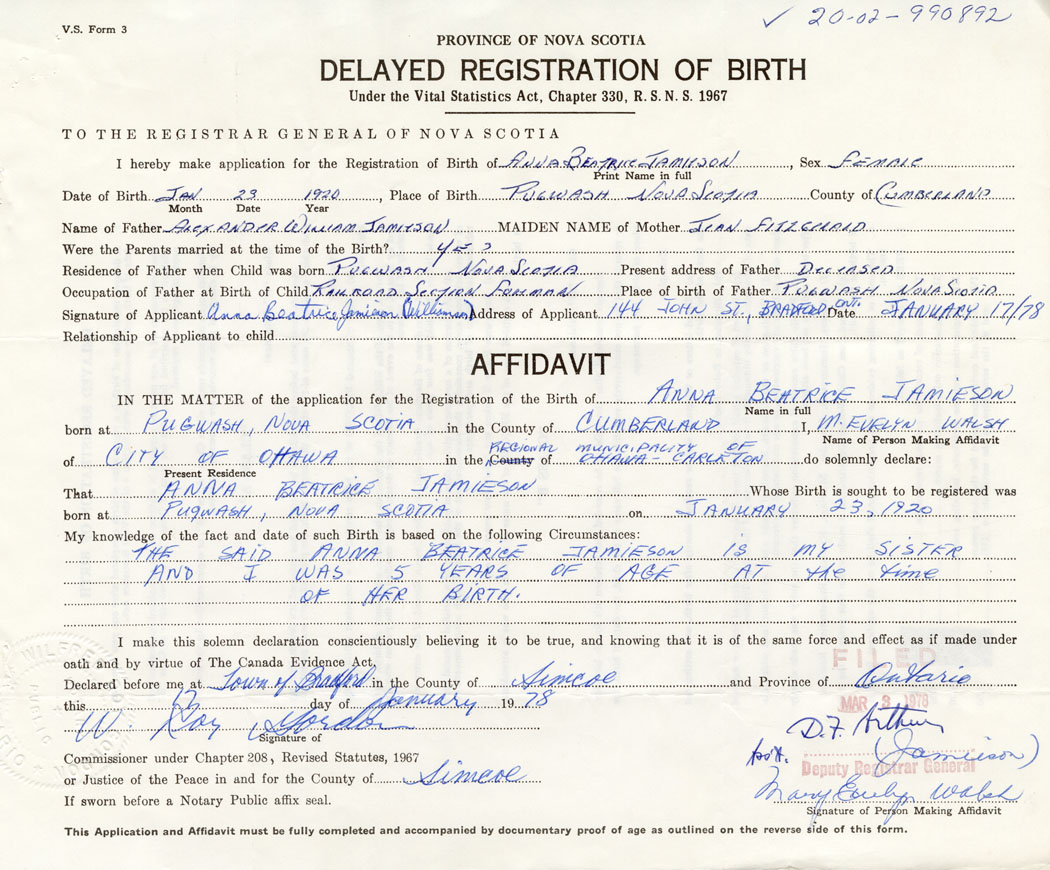 V.S. Form 3
✓ 20-02-990892
PROVINCE OF NOVA SCOTIA
DELAYED REGISTRATION OF BIRTH
Under the Vital Statistics Act, Chapter 330, R. S. N. S. 1967
TO THE REGISTRAR GENERAL OF NOVA SCOTIA
I hereby make application for the Registration of Birth of ANNA BEATRICE JAMIESON, Sex FEMALE
Print Name in full
Date of Birth JAN 23 1920, Place of Birth PUGWASH NOVA SCOTIA County of CUMBERLAND
Month Date Year
Name of Father ALEXANDER WILLIAM JAMIESON MAIDEN NAME of Mother JEAN FITZGERALD
Were the Parents married at the time of the Birth? YES
Residence of Father when Child was born PUGWASH NOVA SCOTIA Present address of Father DECEASED
Occupation of Father at Birth of Child RAILROAD SECTION FOREMAN Place of birth of Father PUGWASH NOVA SCOTIA
Signature of Applicant Anna Beatrice Jamieson (Williamson) Address of Applicant 144 JOHN ST., BRADFORD ONT. Date JANUARY 17/78
Relationship of Applicant to child
AFFIDAVIT
IN THE MATTER of the application for the Registration of the Birth of ANNA BEATRICE JAMIESON
Name in full
born at PUGWASH, NOVA SCOTIA in the County of CUMBERLAND I, M. EVELYN WALSH
Name of Person Making Affidavit
REGIONAL MUNICIPALITY OF
of CITY OF OTTAWA in the County of OTTAWA-CARLETON do solemnly declare:
Present Residence
That ANNA BEATRICE JAMIESON Whose Birth is sought to be registered was
born at PUGWASH, NOVA SCOTIA on JANUARY 23, 1920
My knowledge of the fact and date of such Birth is based on the following Circumstances:
THE SAID ANNA BEATRICE JAMIESON IS MY SISTER
AND I WAS 5 YEARS OF AGE AT the time
OF HER BIRTH.
I make this solemn declaration conscientiously believing it to be true, and knowing that it is of the same force and effect as if made under
oath and by virtue of The Canada Evidence Act,
FILED
Declared before me at Town of Bradford in the County of Simcoe and Province of Ontario
this day of January 19 78
MAR 3 1978
W. Roy Gordon
D.F. Arthur
Signature of
Commissioner under Chapter 208, Revised Statutes, 1967
(Jamieson)
Deputy Registrar General
or Justice of the Peace in and for the County of Simcoe
Mary Evelyn Walsh
If sworn before a Notary Public affix seal.
Signature of Person Making Affidavit
This Application and Affidavit must be fully completed and accompanied by documentary proof of age as outlined on the reverse side of this form.